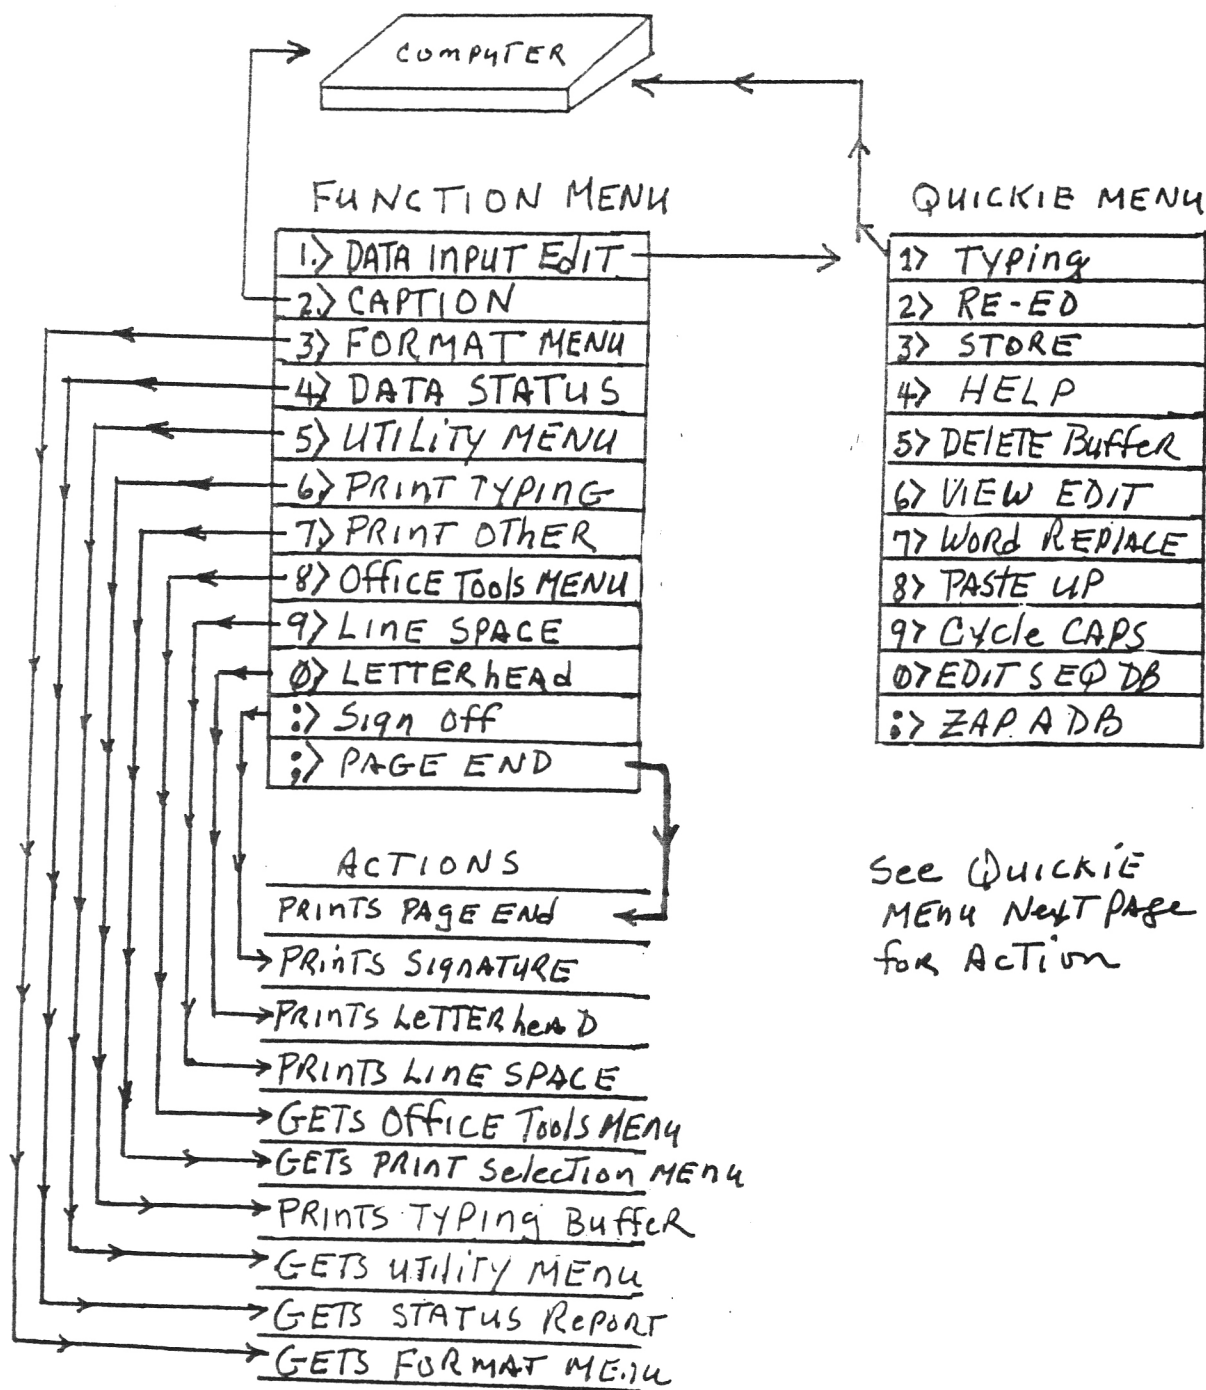 COMPUTER
FUNCTION MENU
1.> DATA INPUT EdIT
2.> CAPTION
3> FORMAT MENU
4> DATA STATUS
5> UTILITY MENU
6> PRINT TYPING
7> PRINT OTHER
8> OFFICE Tools MENU
9> LINE SPACE
0> LETTERhEAd
:> Sign Off
;> PAGE END
QUICKIE MENU
1> Typing
2> RE-ED
3> STORE
4> HELP
5> DElETE BuffeR
6> VIEW EDIT
7> WORd REPlACE
8> PASTE UP
9> Cycle CAPS
0> EDIT SEQ DB
:> ZAP A DB
ACTIONS
PRINTS PAgE ENd
PRiNTS SIgnATURE
PRINTS LeTTERheAD
PRINTS LINE SPACE
GETS OffICE Tools MENu
GETS PRINT Selection MENu
PRINTS TYPIng BuffeR
GETS UTIlITY MENu
GETS STATUS RePORT
GETS FORMAT MENu
See QuICKiE
MENu NexT PAge
foR AcTion